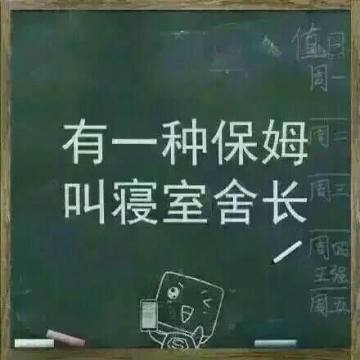 有一种保姆
叫寝室舍长
值日
周一
周二
周三
周四
王强
周五